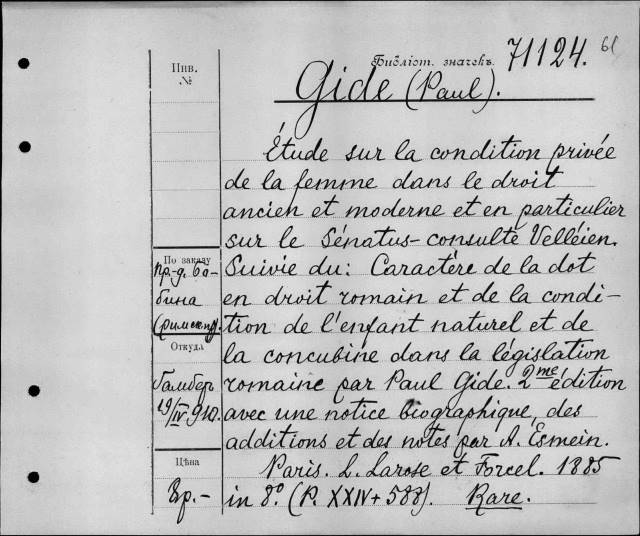 Библіот. значекъ. 71124.
Инв.
№
Gide (Paul).
Étude sur la condition privée
de la femme dans le droit
ancien et moderne et en particulier
sur le Sénatus-consulte Velléien.
По заказу
пр-д. Ба-
бина
Suivie du: Caractère de la dot
en droit romain et de la condi-
tion de l'enfant naturel et de
Откуда
la concubine dans la législation
romaine par Paul Gide. 2me édition
19/IV 910.
avec une notice biographique, des
additions et des notes par A. Esmein.
Цѣна
Paris. L. Larose et Forcel. 1885
in 8º. (P. XXIV + 588). Rare.